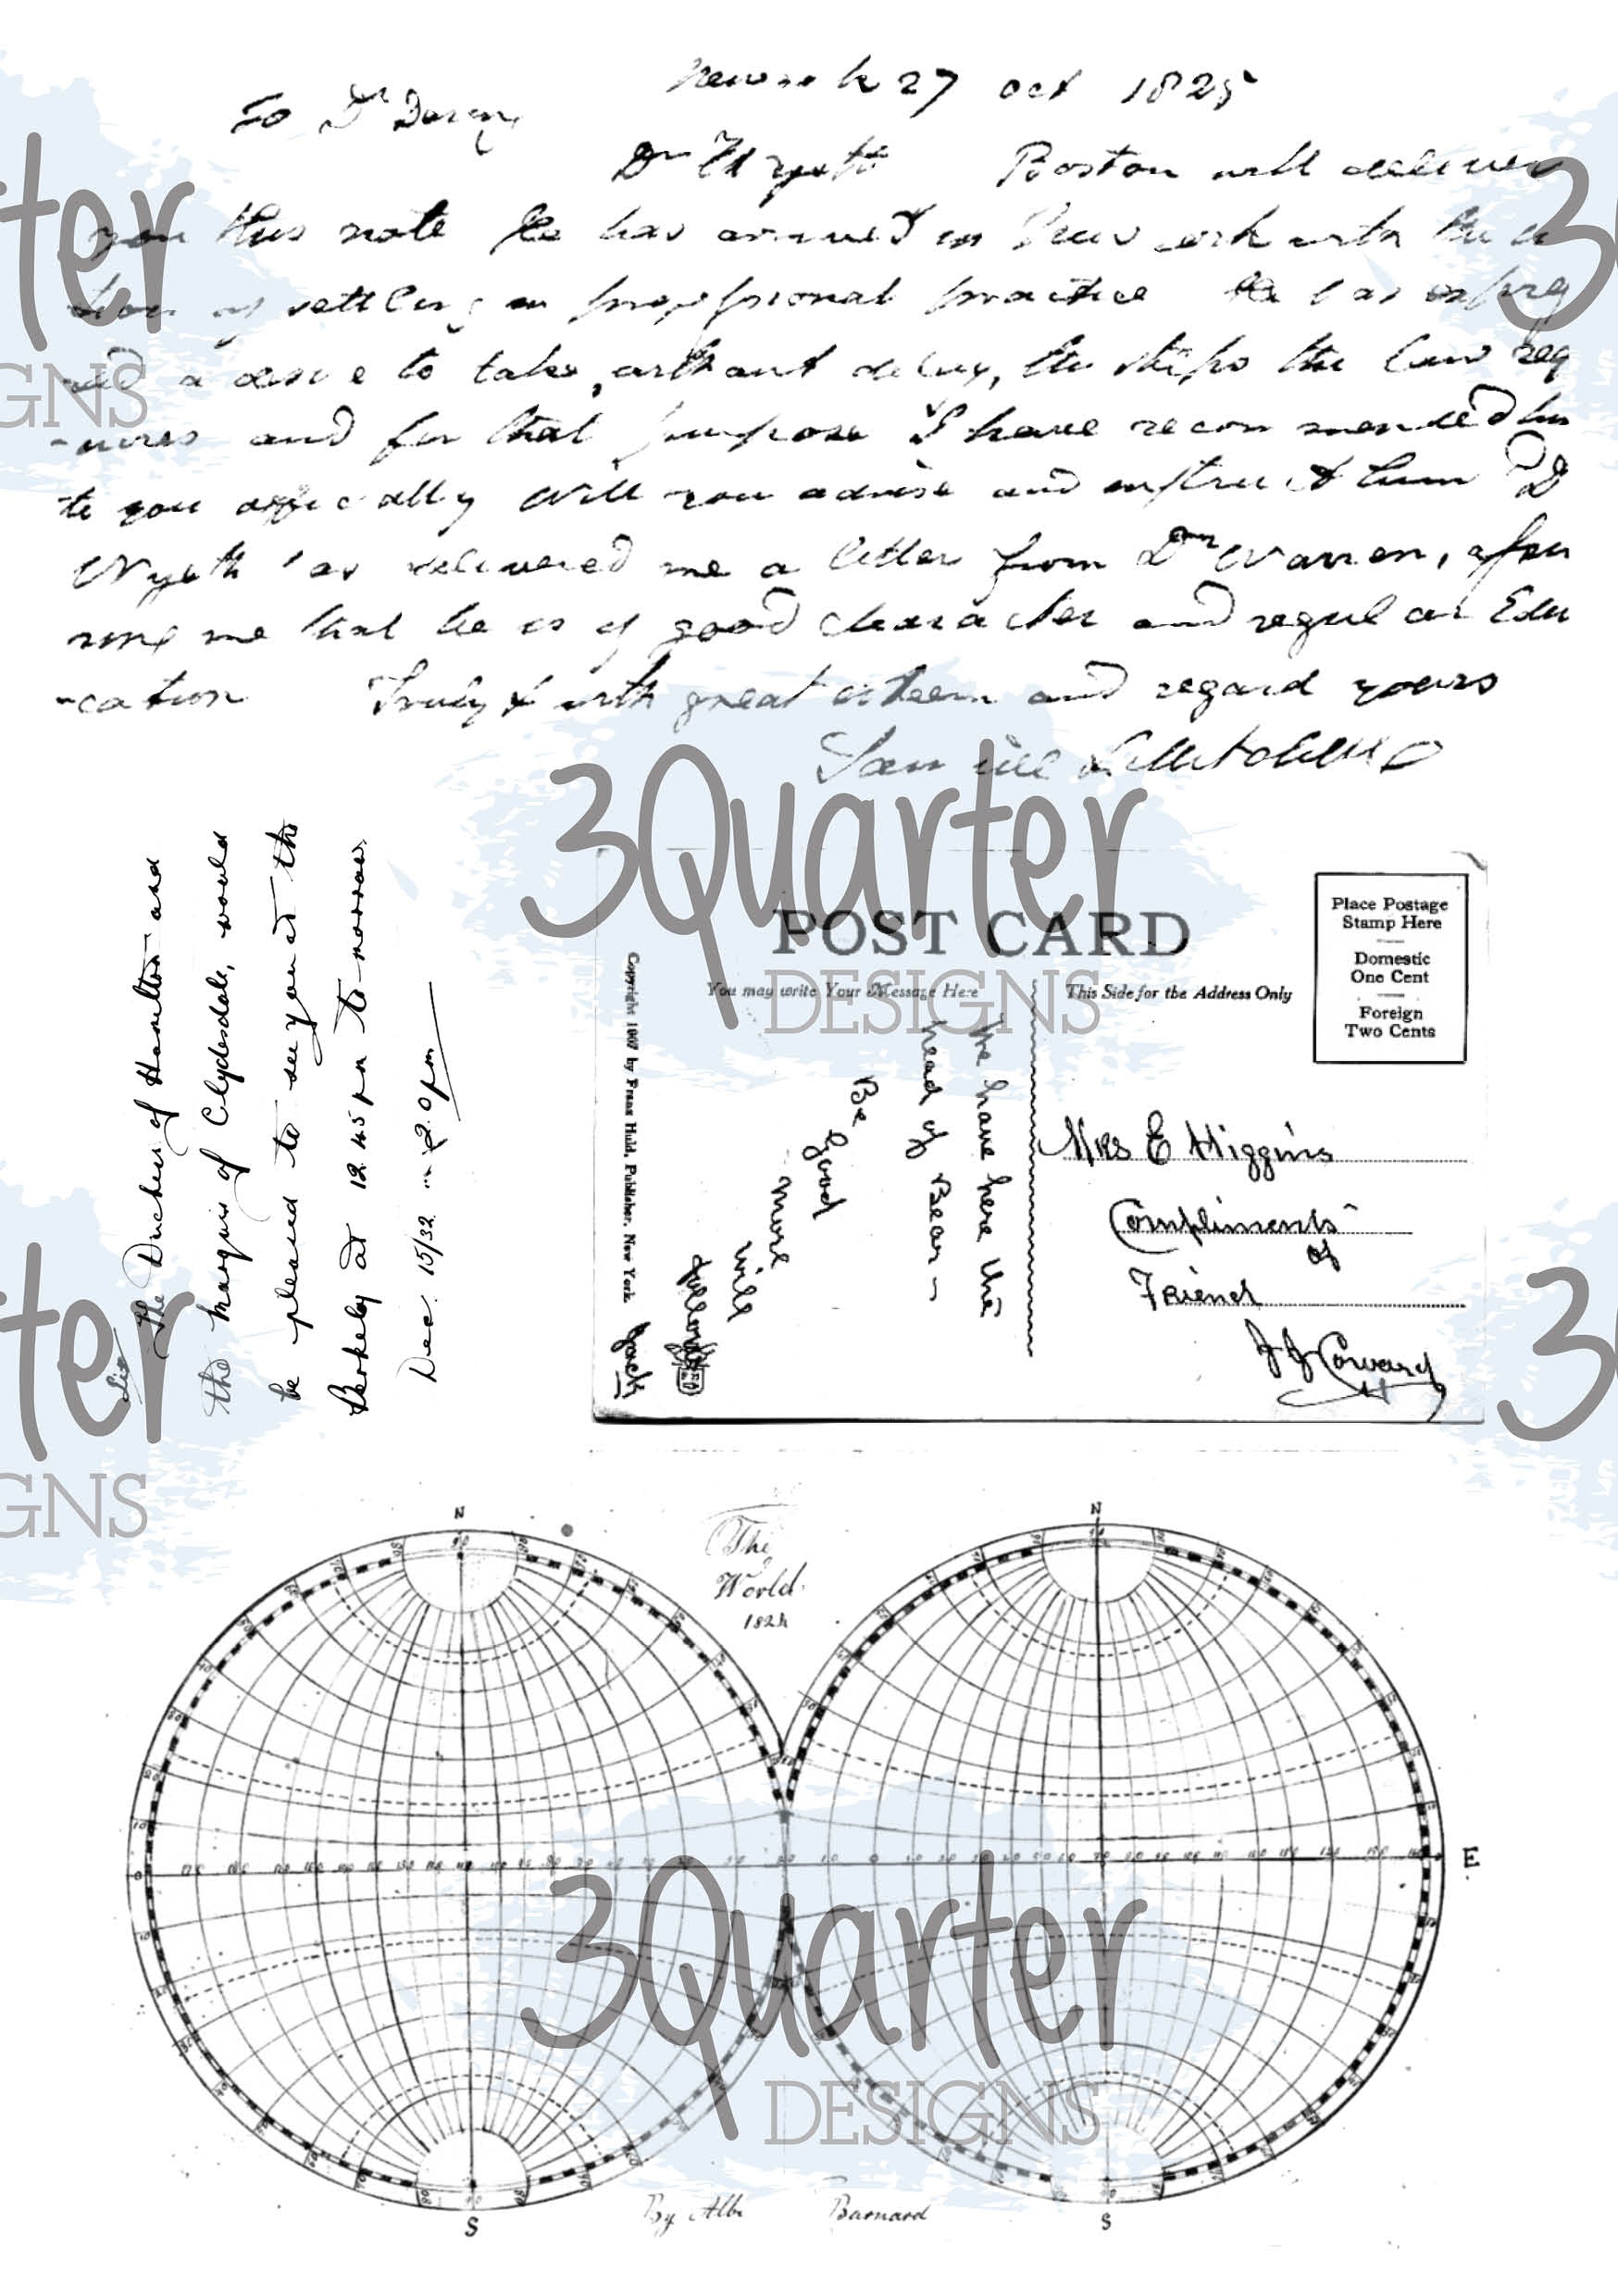 27 Oct 1825
To Dr
Boston will deliver
you this note He has arrived in New York with the
of settling in professional practice He has
a desire to take, without delay, the steps the law req
-uires and for that purpose I have recommended him
to you especially Will you advise and instruct him D
Wyeth has delivered me a letter from Dr Warren, assu
ring me that he is of good character and regular Edu
-cation Truly & with great esteem and regard yours
The Duchess of Hamilton and
the Marquis of Clydesdale, would
be pleased to see you at the
Berkely at 12.45 pm to-morrow
Dec. 15/32 2.0 pm
POST CARD
You may write Your Message Here
This Side for the Address Only
Place Postage
Stamp Here
Domestic
One Cent
Foreign
Two Cents
Copyright 1907 by Franz Huld, Publisher, New York.
We have here the
head of Bear -
Be good
more
will
follow
Jack
Mrs E Higgins
Compliments
of
Friend
J J Coward
The
World
1824
N
N
E
S
S
By Barnard
3Quarter
DESIGNS
3Quarter
DESIGNS
ter
GNS
ter
GNS
3
3